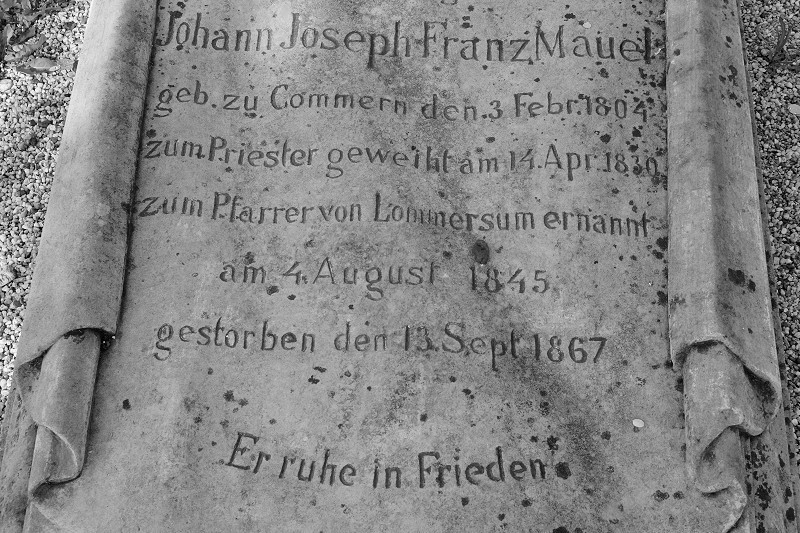 Johann Joseph Franz Mauel
geb. zu Commern den 3 Febr. 1804
zum Priester geweiht am 14. Apr. 1830
zum Pfarrer von Lommersum ernannt
am 4. August 1845
gestorben den 13. Sept 1867
Er ruhe in Frieden